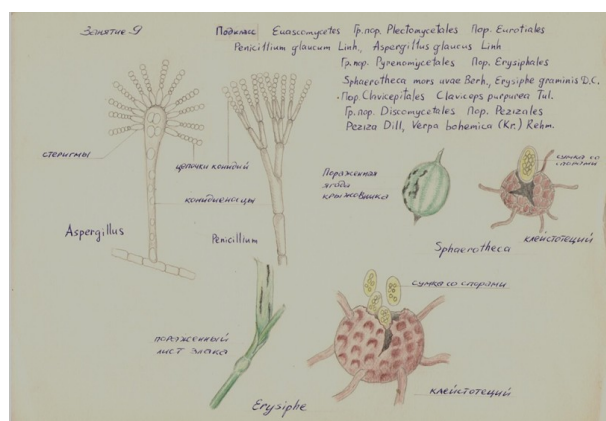 Занятие-9
Подкласс Euascomycetes Гр.пор. Plectomycetales Пор. Eurotiales
Penicillium glaucum Linh., Aspergillus glaucus Linh
Гр.пор. Pyrenomycetales Пор. Erysiphales
Sphaerotheca mors uvae Berh., Erysiphe graminis D.C.
Пор. Clavicepitales Claviceps purpurea Tul.
Гр.пор. Discomycetales Пор. Pezizales
Peziza Dill, Verpa bohemica (Kr.) Rehm.
стеригмы
цепочки конидий
конидиеносцы
Aspergillus
Penicillium
Пораженная
ягода
крыжовника
сумка со
спорами
клейстотеций
Sphaerotheca
пораженный
лист злака
Erysiphe
сумка со спорами
клейстотеций